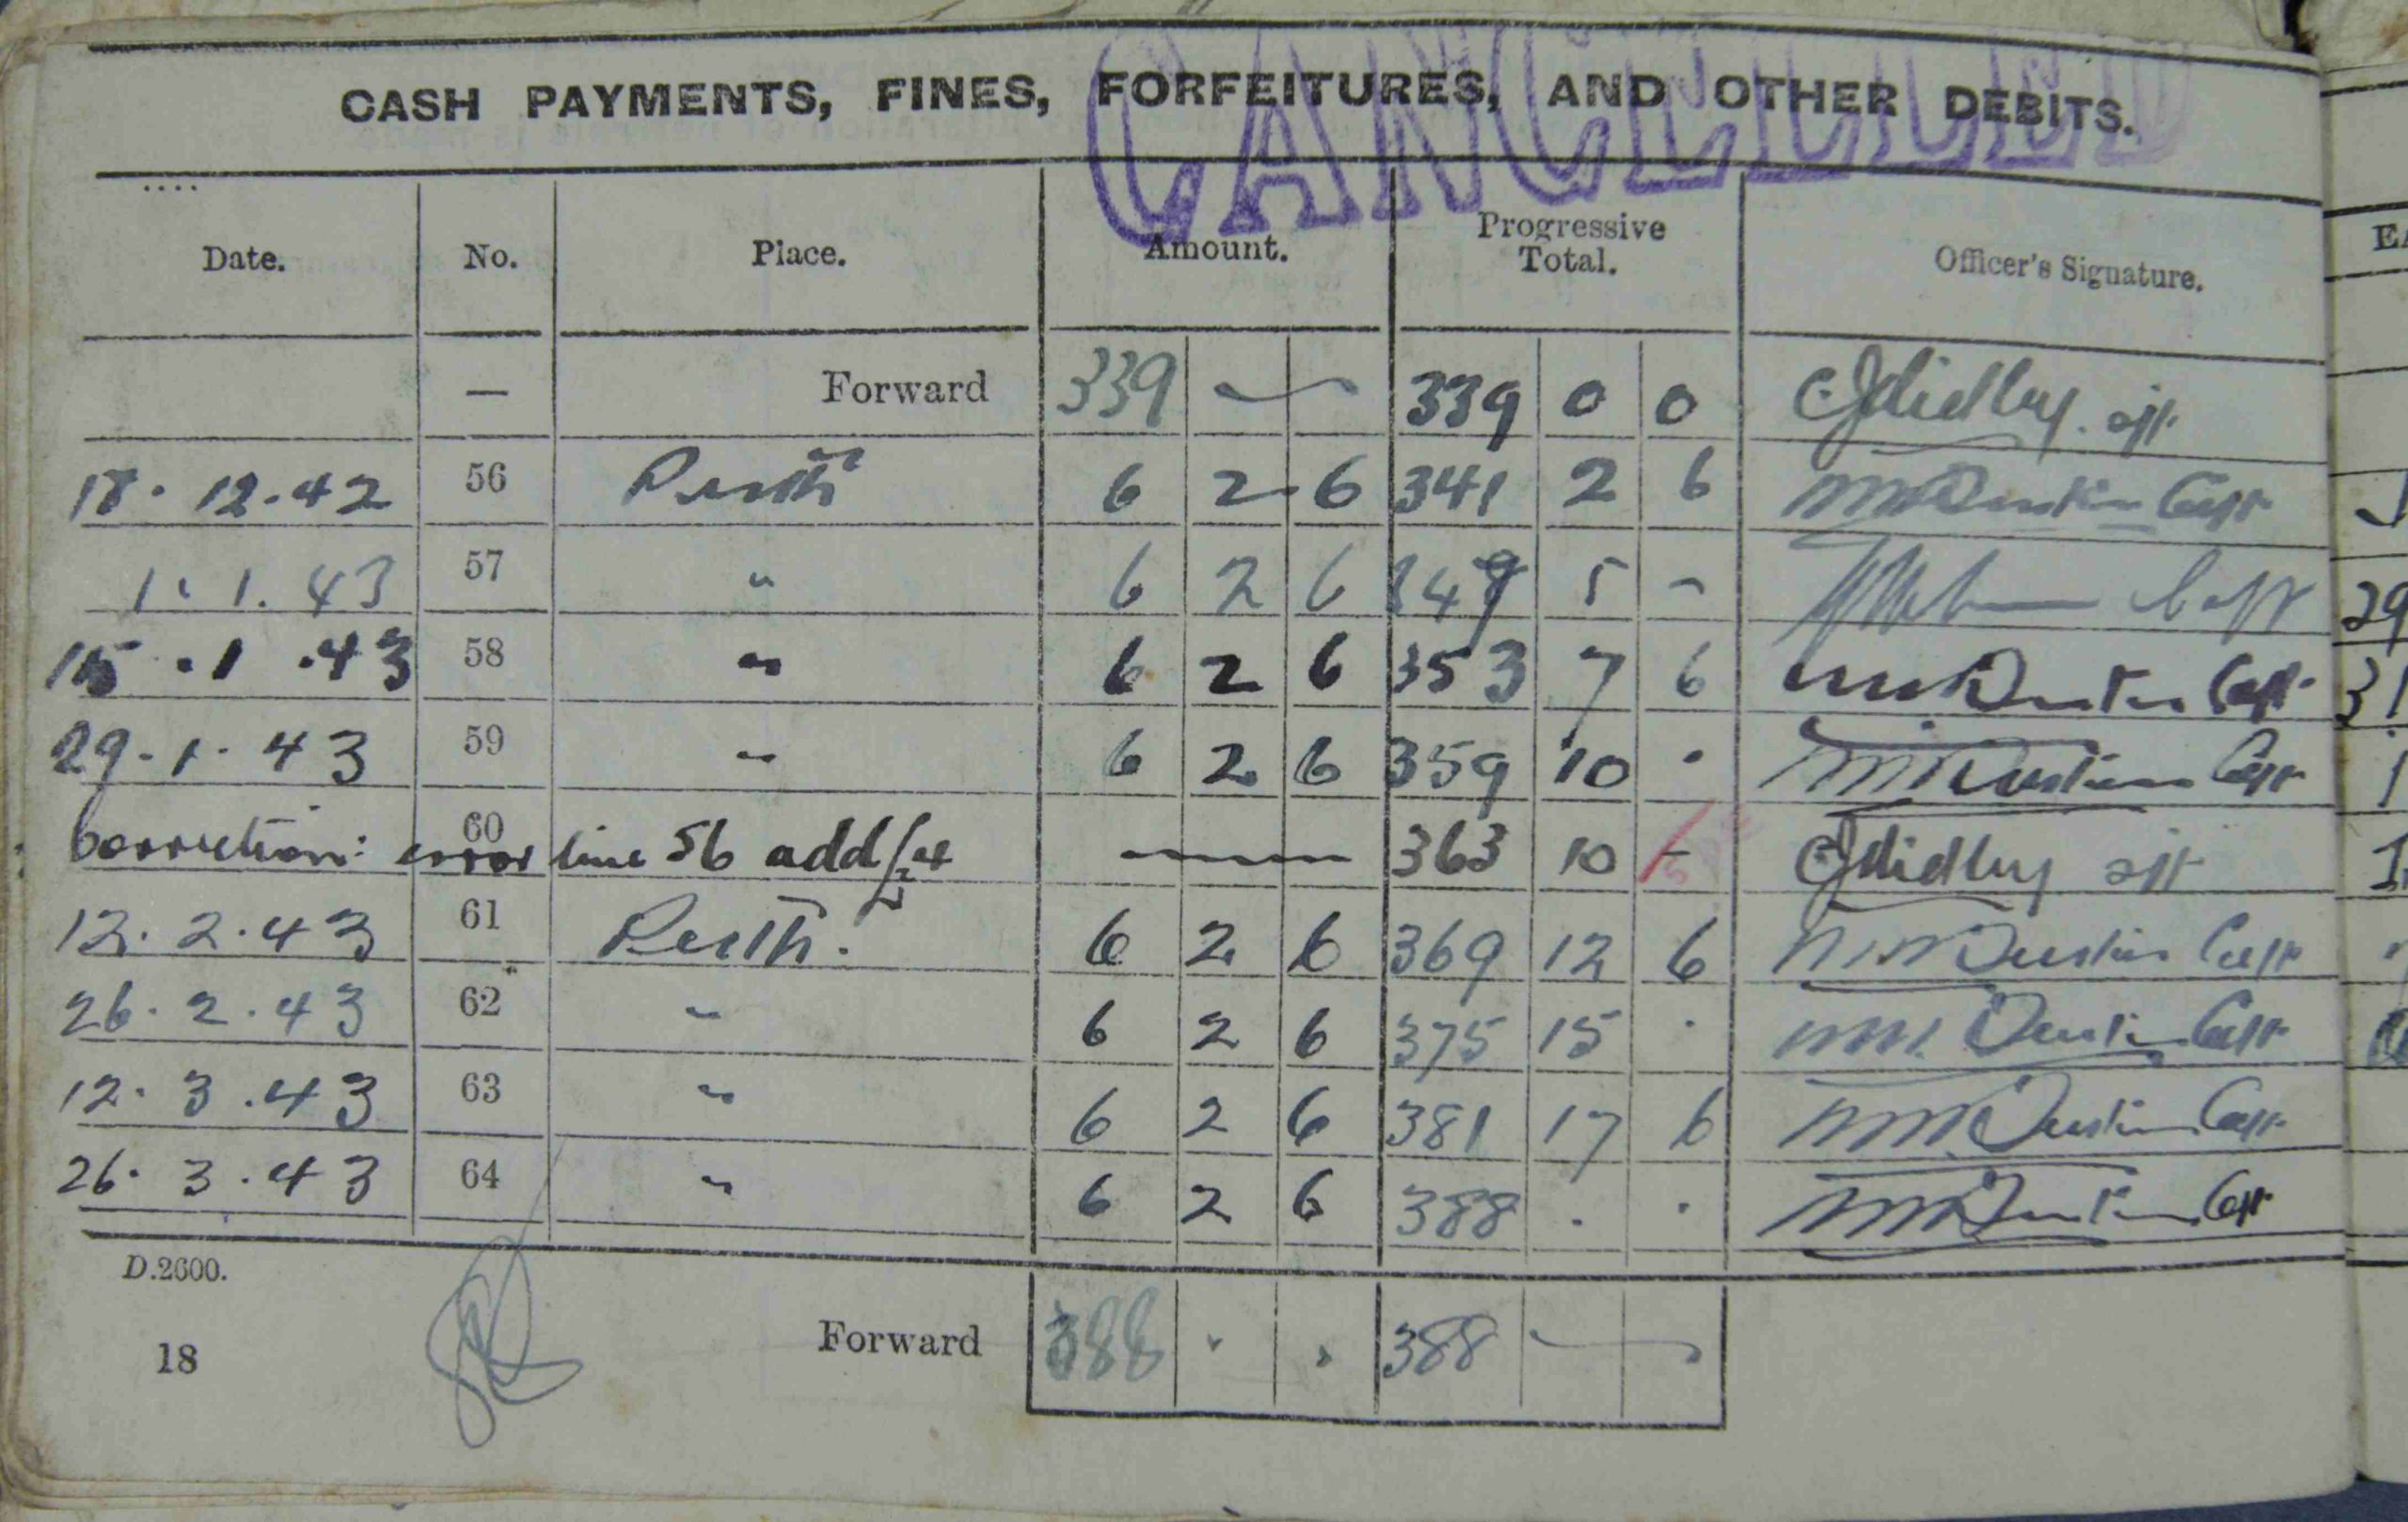 CANCELLED
CASH PAYMENTS, FINES, FORFEITURES, AND OTHER DEBITS.
Date. No. Place. Amount. Progressive Total. Officer's Signature.
— Forward 339 — 339 0 0
18. 12. 42 56 Perth 6 2 6 341 2 6 Capt
1. 1. 43 57 " 6 2 6 347 5 - Capt
15 .1 .43 58 " 6 2 6 353 7 6 Capt
29. 1. 43 59 " 6 2 6 359 10 . Capt
60
Correction: error line 56 add £4 — 363 10 -
12. 2. 43 61 Perth. 6 2 6 369 12 6 Capt
26. 2. 43 62 " 6 2 6 375 15 . Capt
12. 3. 43 63 " 6 2 6 381 17 6 Capt
26. 3. 43 64 " 6 2 6 388 . . Capt
D.2600.
18 Forward 388 . . 388 —